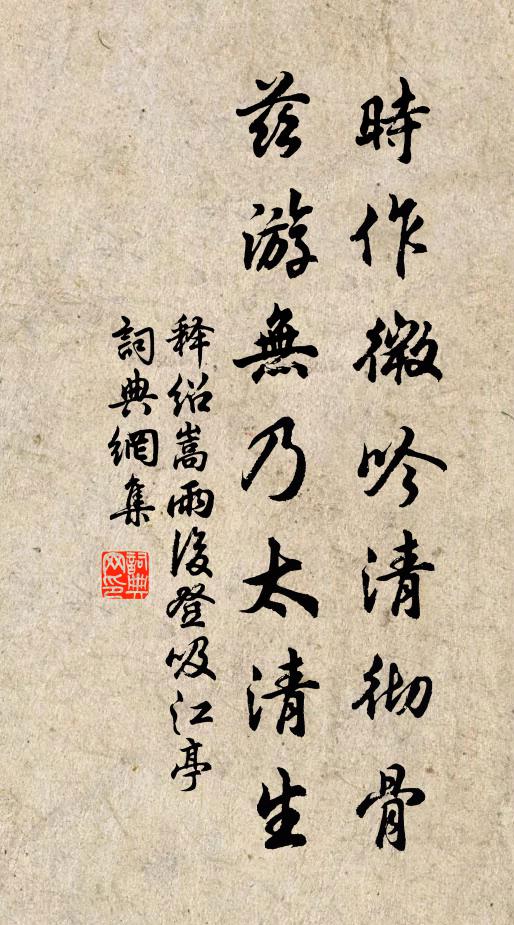 時作微吟清彻骨
茲游無乃太清生
释绍嵩雨後登吸江亭
詞典網集
詞典网印